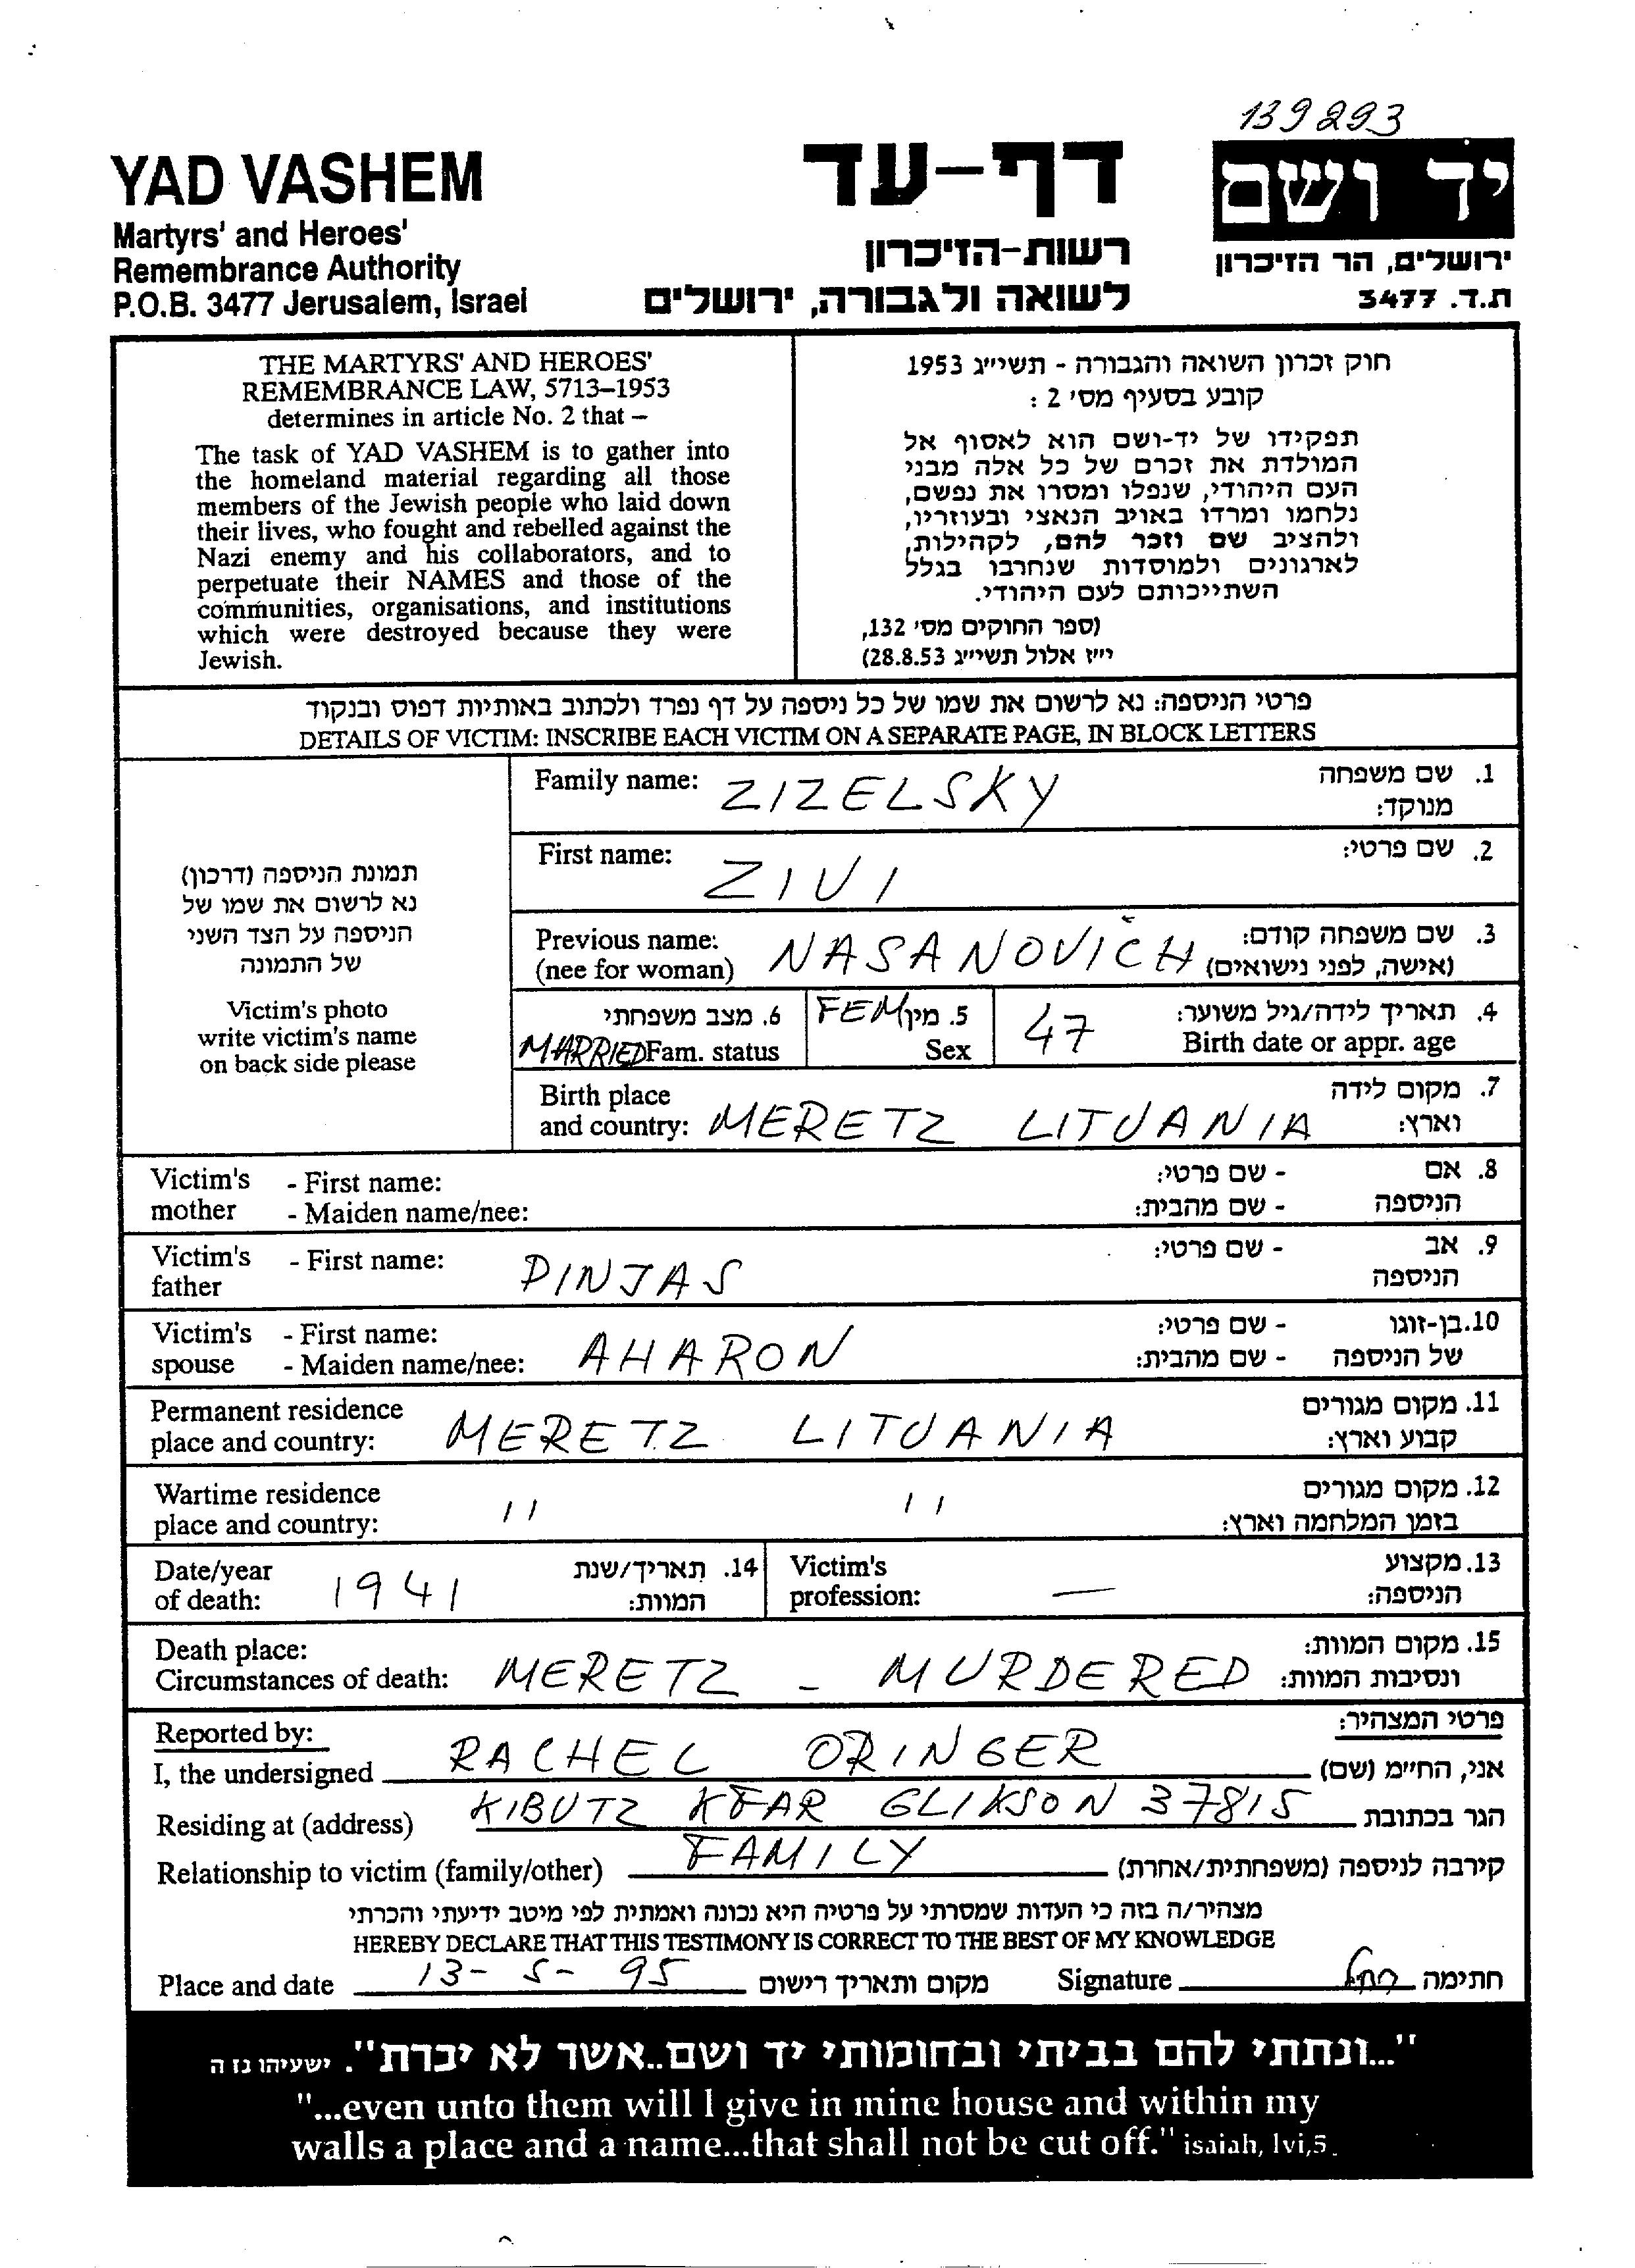 139293
YAD VASHEM
Martyrs' and Heroes'
Remembrance Authority
P.O.B. 3477 Jerusalem, Israel
דף-עד
רשות-הזיכרון
לשואה ולגבורה, ירושלים
יד ושם
ירושלים, הר הזיכרון
ת.ד. 3477
THE MARTYRS' AND HEROES'
REMEMBRANCE LAW, 5713–1953
determines in article No. 2 that –
The task of YAD VASHEM is to gather into
the homeland material regarding all those
members of the Jewish people who laid down
their lives, who fought and rebelled against the
Nazi enemy and his collaborators, and to
perpetuate their NAMES and those of the
communities, organisations, and institutions
which were destroyed because they were
Jewish.
חוק זכרון השואה והגבורה - תשי"ג 1953
קובע בסעיף מס' 2 :
תפקידו של יד-ושם הוא לאסוף אל
המולדת את זכרם של כל אלה מבני
העם היהודי, שנפלו ומסרו את נפשם,
נלחמו ומרדו באויב הנאצי ובעוזריו,
ולהציב שם וזכר להם, לקהילות,
לארגונים ולמוסדות שנחרבו בגלל
השתייכותם לעם היהודי.
(ספר החוקים מס' 132,
י"ז אלול תשי"ג 28.8.53)
פרטי הניספה: נא לרשום את שמו של כל ניספה על דף נפרד ולכתוב באותיות דפוס ובנקוד
DETAILS OF VICTIM: INSCRIBE EACH VICTIM ON A SEPARATE PAGE, IN BLOCK LETTERS
תמונת הניספה (דרכון)
נא לרשום את שמו של
הניספה על הצד השני
של התמונה
Victim's photo
write victim's name
on back side please
Family name: ZIZELSKY 1. שם משפחה
מנוקד:
First name: ZIVI 2. שם פרטי:
Previous name: NASANOVICH 3. שם משפחה קודם:
(nee for woman) (אישה, לפני נישואים)
6. מצב משפחתי FEM 5. מין 47 4. תאריך לידה/גיל משוער:
MARRIED Fam. status Sex Birth date or appr. age
Birth place 7. מקום לידה
and country: MERETZ LITUANIA וארץ:
Victim's - First name: - שם פרטי: 8. אם
mother - Maiden name/nee: - שם מהבית: הניספה
Victim's - First name: PINJAS - שם פרטי: 9. אב
father הניספה
Victim's - First name: - שם פרטי: 10. בן-זוגו
spouse - Maiden name/nee: AHARON - שם מהבית: של הניספה
Permanent residence 11. מקום מגורים
place and country: MERETZ LITUANIA קבוע וארץ:
Wartime residence 12. מקום מגורים
place and country: " " בזמן המלחמה וארץ:
Date/year 14. תאריך/שנת Victim's 13. מקצוע
of death: 1941 המוות: profession: — הניספה:
Death place: 15. מקום המוות:
Circumstances of death: MERETZ - MURDERED ונסיבות המוות:
Reported by: פרטי המצהיר:
I, the undersigned RACHEL ORINGER אני, החי"מ (שם)
Residing at (address) KIBUTZ KFAR GLIKSON 37815 הגר בכתובת
Relationship to victim (family/other) FAMILY קירבה לניספה (משפחתית/אחרת)
מצהיר/ה בזה כי העדות שמסרתי על פרטיה היא נכונה ואמתית לפי מיטב ידיעתי והכרתי
HEREBY DECLARE THAT THIS TESTIMONY IS CORRECT TO THE BEST OF MY KNOWLEDGE
Place and date 13-5-95 מקום ותאריך רישום Signature רחל חתימה
"...ונתתי להם בביתי ובחומותי יד ושם..אשר לא יכרת". ישעיהו נז ה
"...even unto them will I give in mine house and within my
walls a place and a name...that shall not be cut off." isaiah, lvi,5.